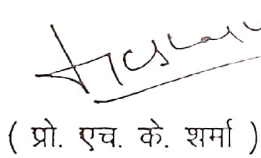 ( प्रो. एच. के. शर्मा )